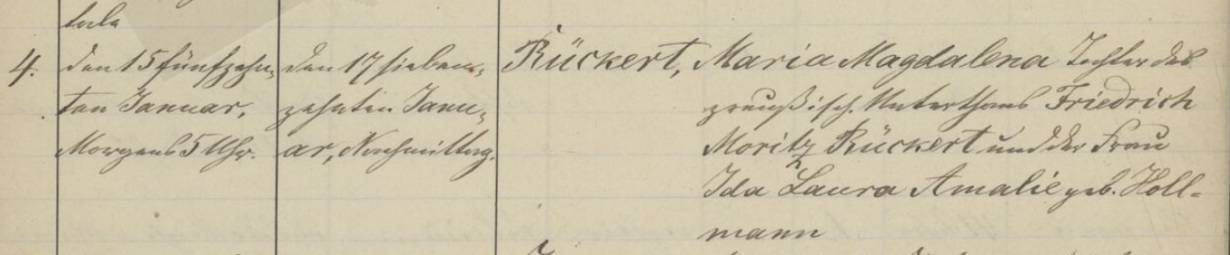 4. den 15 fünfzehn-
ten Januar,
Morgens 5 Uhr.
den 17 sieben-
zehnten Janu-
ar, Nachmittag.
Rückert, Maria Magdalena Tochter des
preußisch. Unterthans Friedrich
Moritz Rückert und der Frau
Ida Laura Amalie geb. Holl-
mann